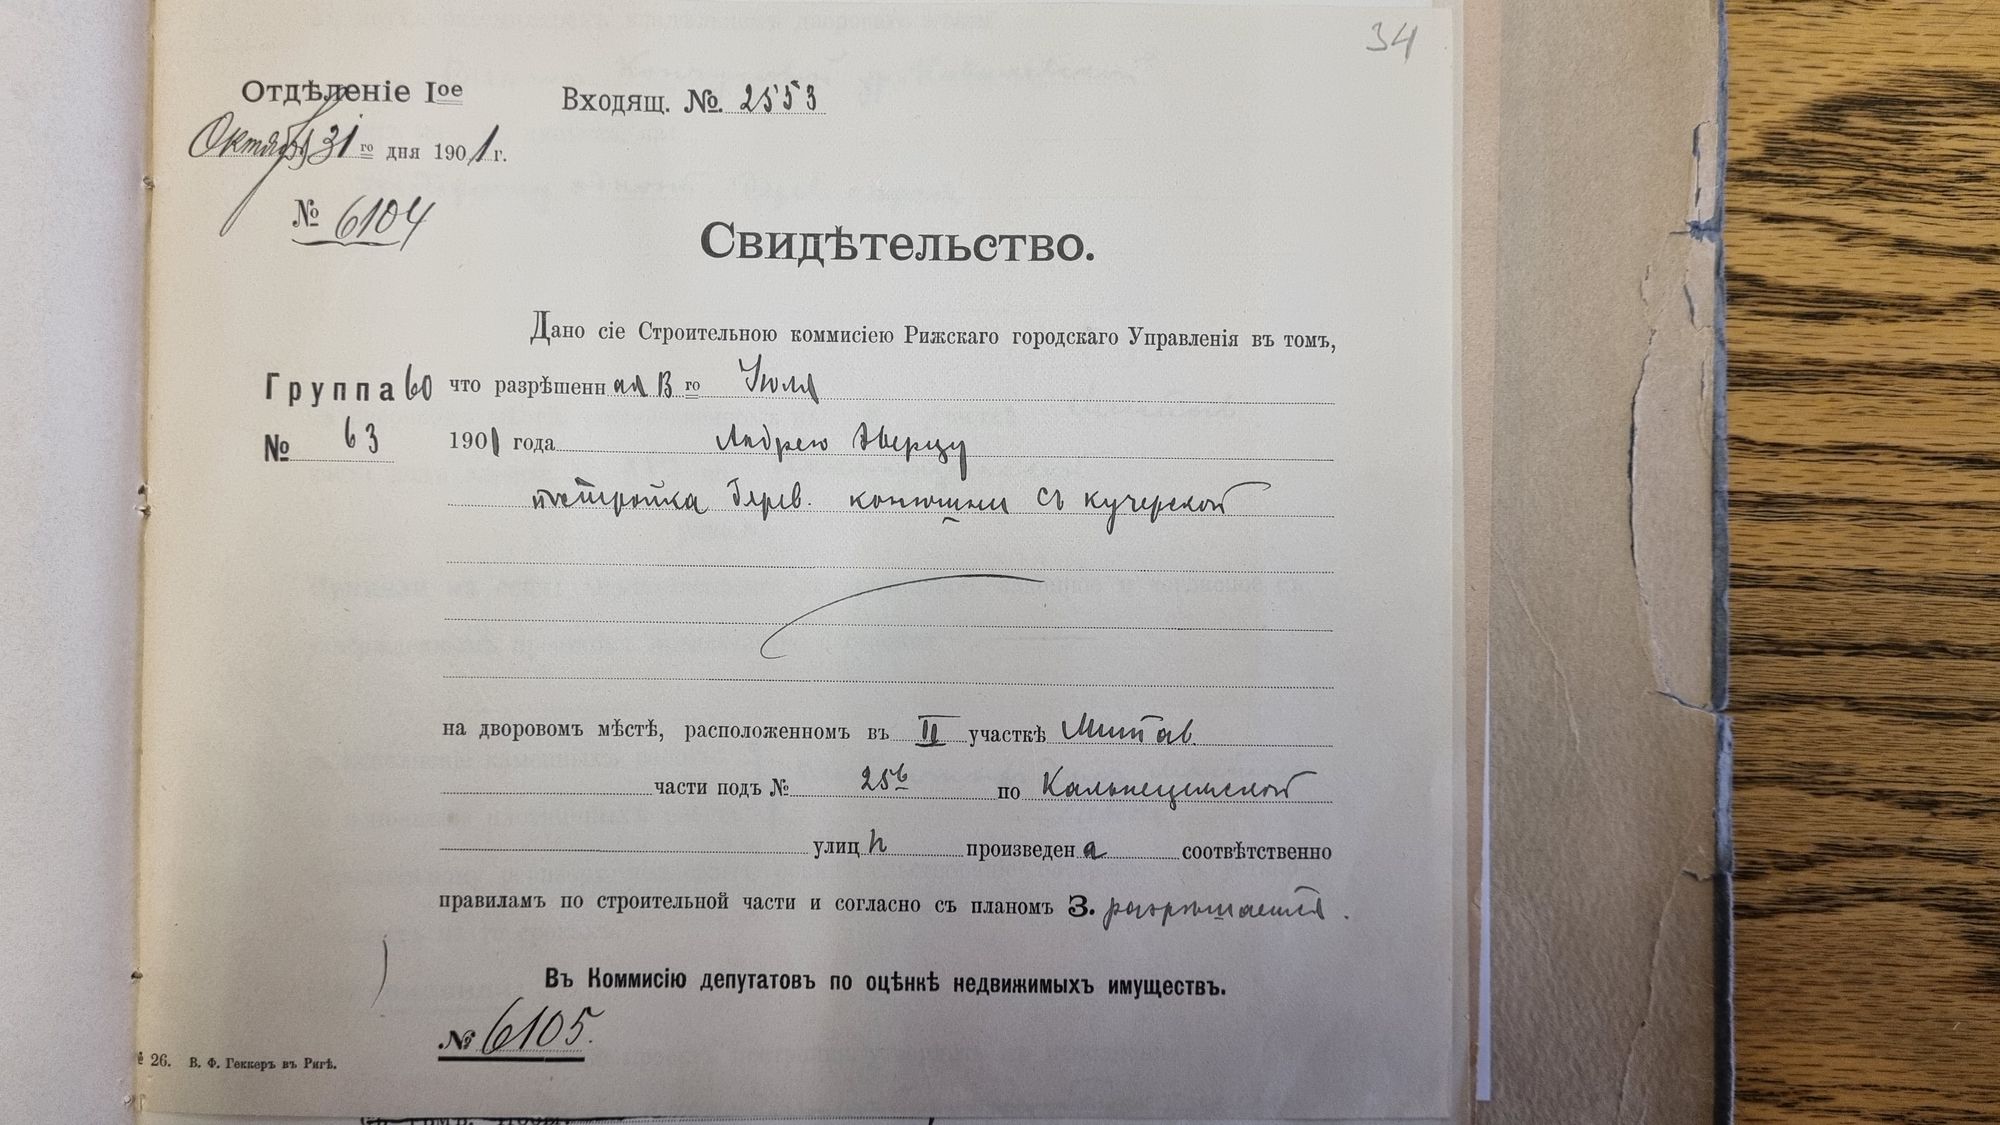 34
Отдѣленіе Iое Входящ. №. 2553
Октября 31 го дня 1901 г.
№ 6104
Свидѣтельство.
Дано сіе Строительною коммисіею Рижскаго городскаго Управленія въ томъ,
Группа 60 что разрѣшенн ая 13 го Іюля
№ 63 1901 года Андрею Эверцу
постройка дерев. конюшни съ кучерской
на дворовомъ мѣстѣ, расположенномъ въ II участкѣ Митав.
части подъ № 25б по Кальнецемской
улиц ѣ произведен а соотвѣтственно
правиламъ по строительной части и согласно съ планомъ З. разрѣшается.
Въ Коммисію депутатовъ по оцѣнкѣ недвижимыхъ имуществъ.
№ 6105.
№ 26. В. Ф. Геккеръ въ Ригѣ.